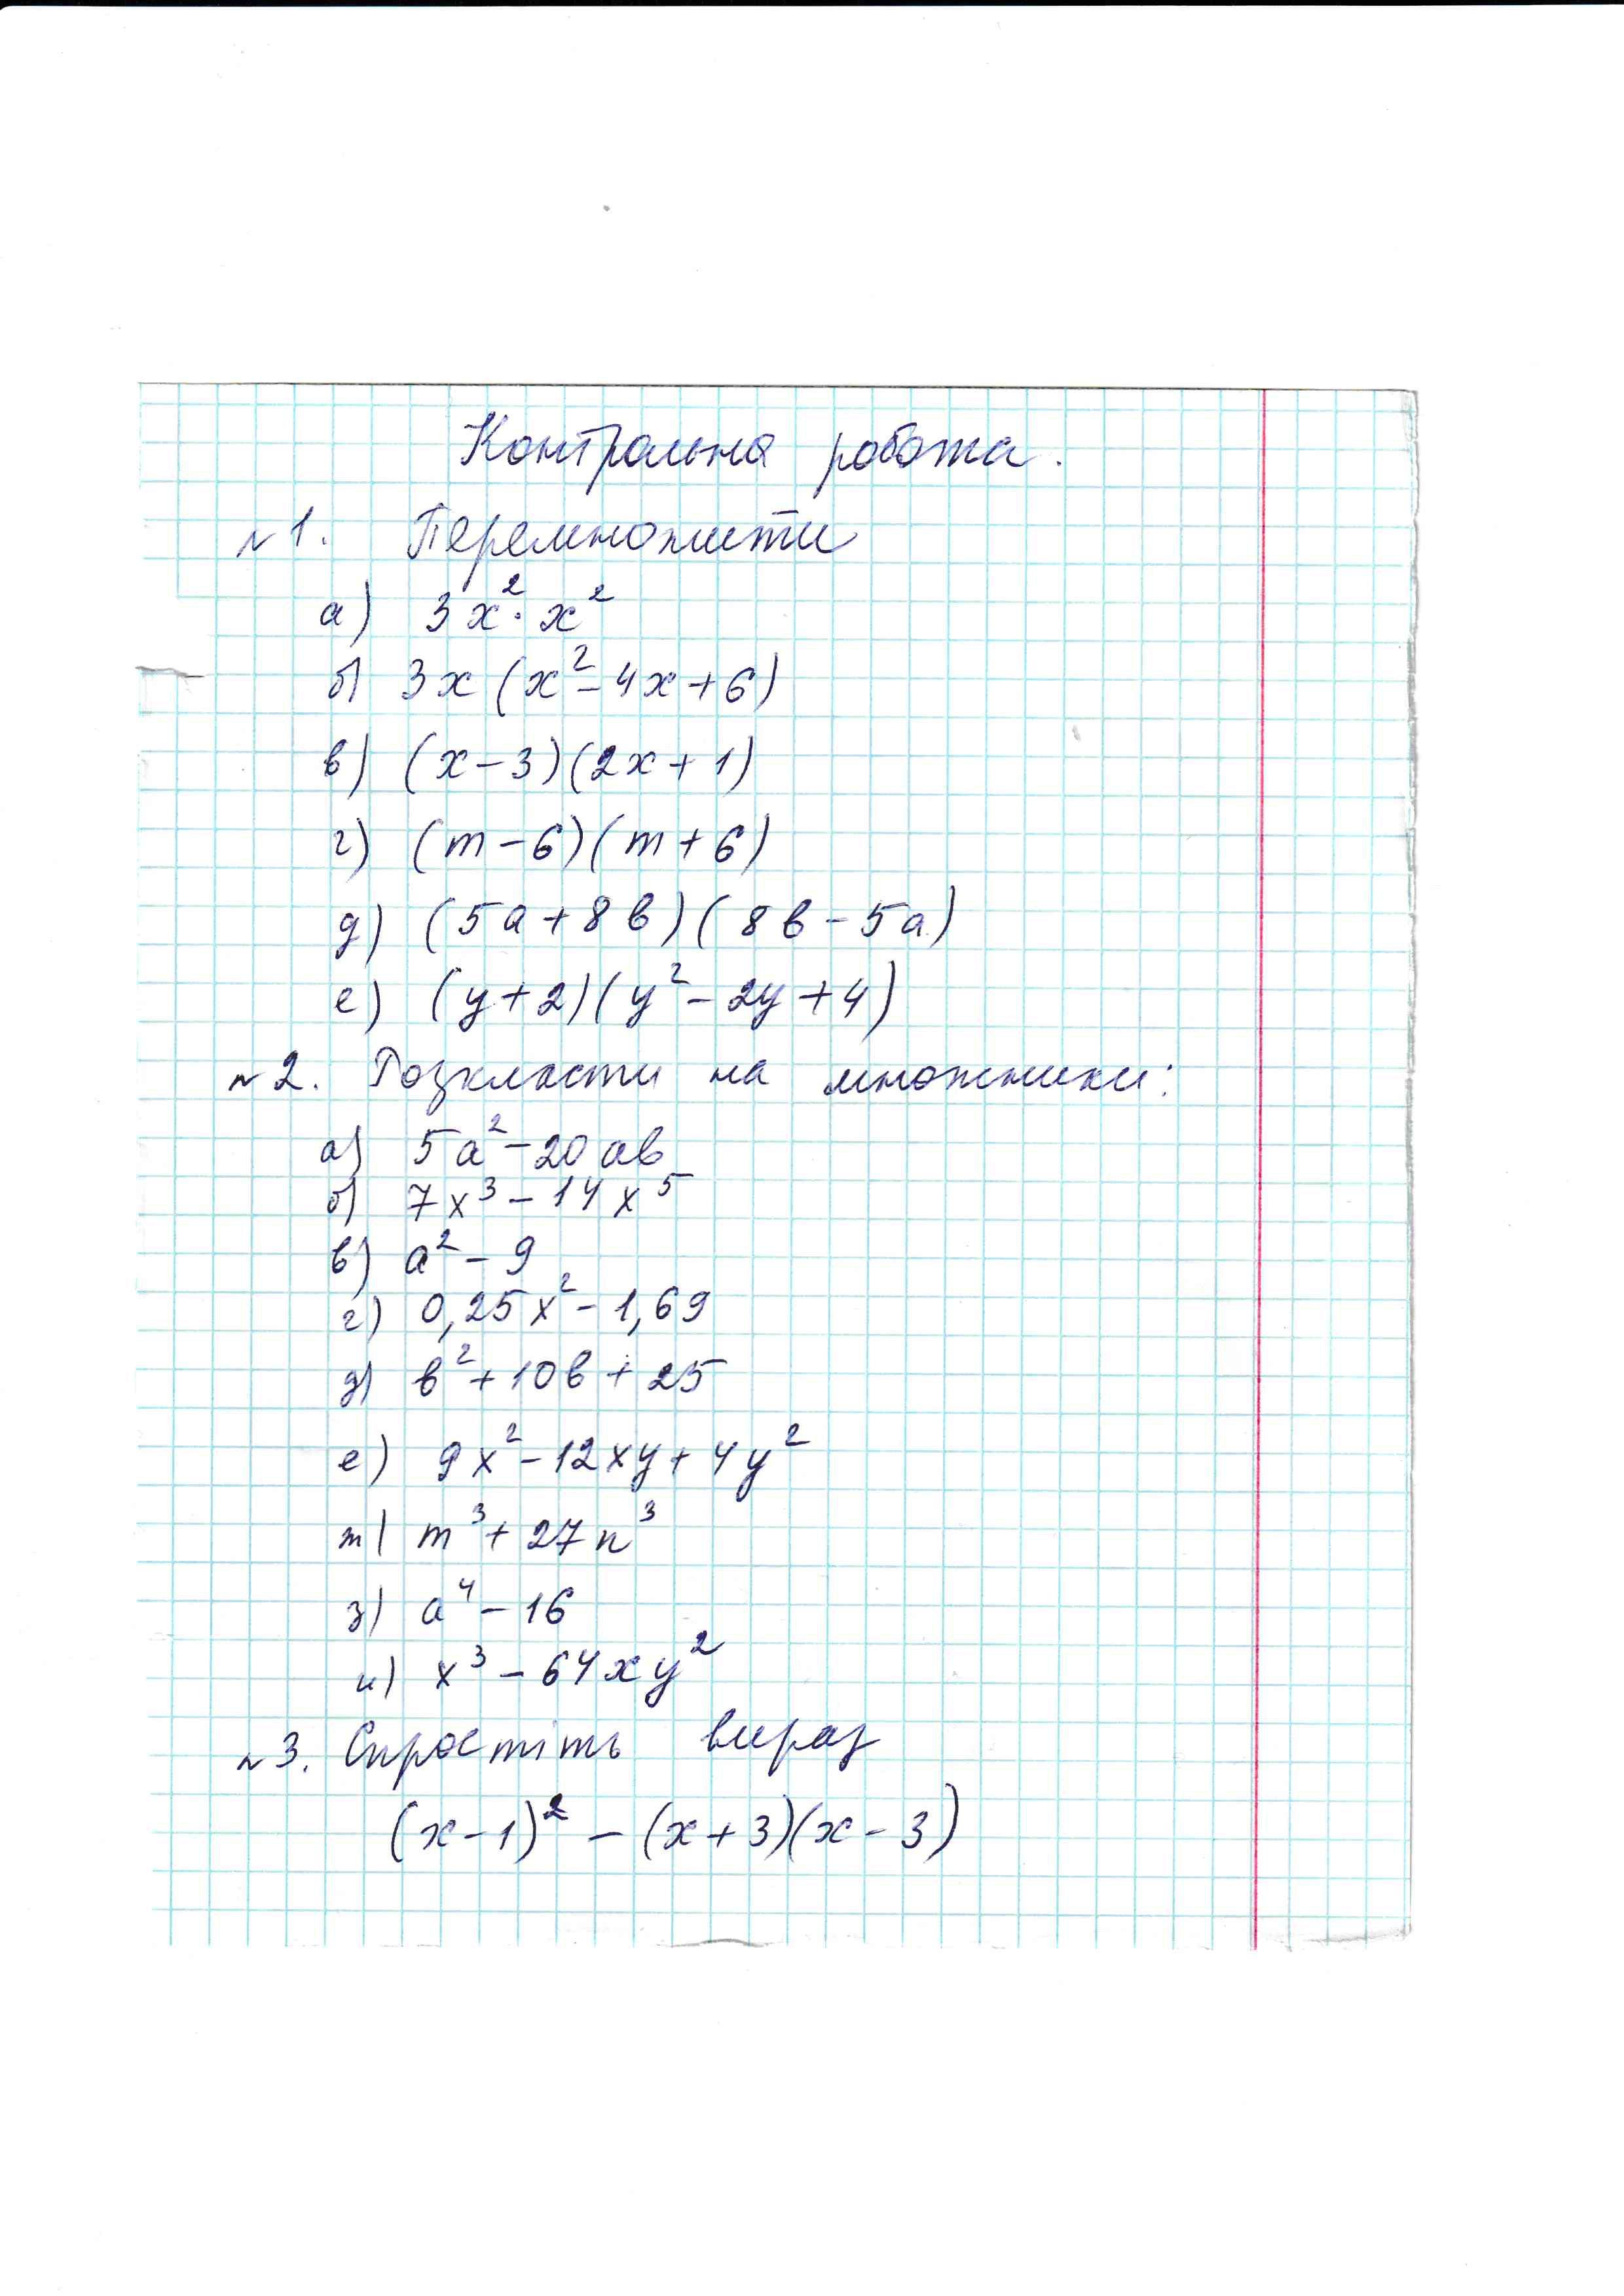 Контрольна робота.
№1. Перемножити
а) 3x²·x²
б) 3x(x²-4x+6)
в) (x-3)(2x+1)
г) (m-6)(m+6)
д) (5a+8b)(8b-5a)
е) (y+2)(y²-2y+4)
№2. Розкласти на множники:
а) 5a²-20ab
б) 7x³-14x⁵
в) a²-9
г) 0,25x²-1,69
д) b²+10b+25
е) 9x²-12xy+4y²
ж) m³+27n³
з) a⁴-16
и) x³-64xy²
№3. Спростіть вираз
(x-1)²-(x+3)(x-3)